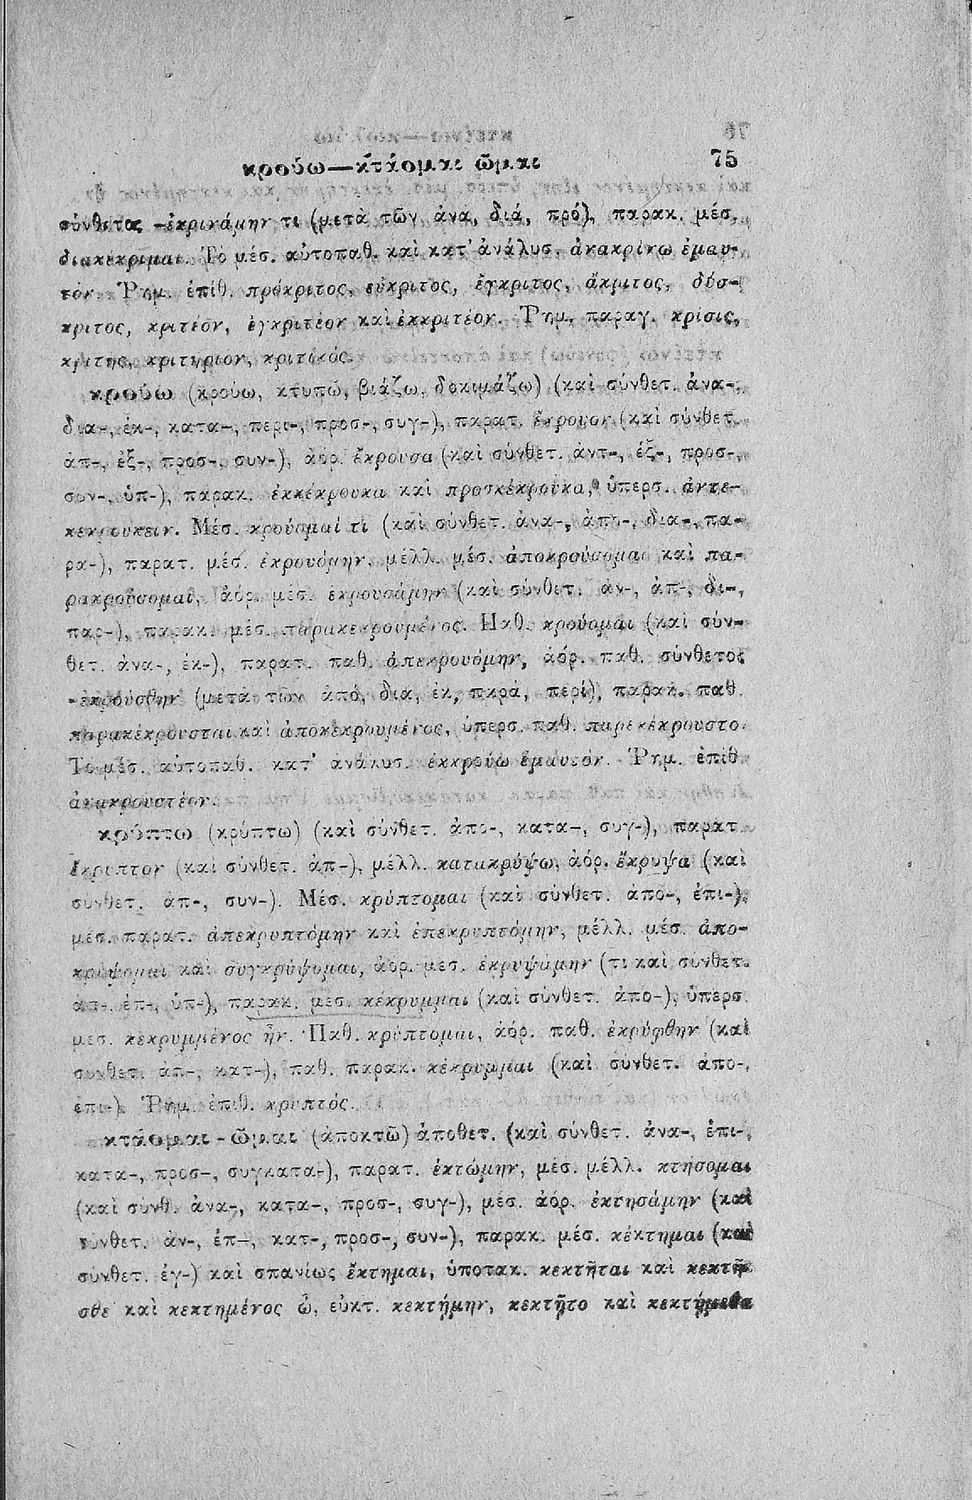 κρούω—κτάομαι ῶμαι 75
σύνθετος -ἐκρινάμην τι (μετὰ τῶν ἀνα, διά, πρό), παρακ. μέσ.
διακέκριμαι. Τὸ μέσ. αὐτοπαθ. καὶ κατ' ἀνάλυσ. ἀνακρίνω ἐμαυ-
τόν. Ῥημ. ἐπίθ. πρόκριτος, εὔκριτος, ἔγκριτος, ἄκριτος, δύσ-
κριτος, κριτέον, ἐγκριτέον καὶ ἐκκριτέον. Ῥημ. παραγ. κρίσις,
κριτής, κριτήριον, κριτικός.
κρούω (κρούω, κτυπῶ, βιάζω, δοκιμάζω) (καὶ σύνθετ. ἀνα-,
δια-, ἐκ-, κατα-, περι-, προσ-, συγ-), παρατ. ἔκρουον (καὶ σύνθετ.
ἀπ-, ἐξ-, προσ-, συν-), ἀόρ. ἔκρουσα (καὶ σύνθετ. ἀντ-, ἐξ-, προσ-,
συν-, ὑπ-), παρακ. ἐκκέκρουκα καὶ προσκέκρουκα, ὑπερσ. ἀντε-
κεκρούκειν. Μέσ. κρούομαί τι (καὶ σύνθετ. ἀνα-, ἀπο-, δια-, πα-
ρα-), παρατ. μέσ. ἐκρουόμην, μέλλ. μέσ. ἀποκρούσομαι καὶ πα-
ρακρούσομαι, ἀόρ. μέσ. ἐκρουσάμην (καὶ σύνθετ. ἀν-, ἀπ-, δι-,
παρ-), παρακ. μέσ. παρακεκρουμένος. Παθ. κρούομαι (καὶ σύν-
θετ. ἀνα-, ἐκ-), παρατ. παθ. ἀπεκρουόμην, ἀόρ. παθ. σύνθετος
-ἐκρούσθην (μετὰ τῶν ἀπό, διά, ἐκ, παρά, περί), παρακ. παθ.
παρακέκρουσται καὶ ἀποκεκρουμένος, ὑπερσ. παθ. παρεκέκρουστο.
Τὸ μέσ. αὐτοπαθ. κατ' ἀνάλυσ. ἐκκρούω ἐμαυτόν. Ῥημ. ἐπίθ.
ἀνακρουστέον.
κρύπτω (κρύπτω) (καὶ σύνθετ. ἀπο-, κατα-, συγ-), παρατ.
ἔκρυπτον (καὶ σύνθετ. ἀπ-), μέλλ. κατακρύψω, ἀόρ. ἔκρυψα (καὶ
σύνθετ. ἀπ-, συν-). Μέσ. κρύπτομαι (καὶ σύνθετ. ἀπο-, ἐπι-),
μέσ. παρατ. ἀπεκρυπτόμην καὶ ἐπεκρυπτόμην, μέλλ. μέσ. ἀπο-
κρύψομαι καὶ συγκρύψομαι, ἀόρ. μέσ. ἐκρυψάμην (τι καὶ σύνθετ.
ἀπ-, ἐπ-, ὑπ-), παρακ. μέσ. κέκρυμμαι (καὶ σύνθετ. ἀπο-), ὑπερσ.
μέσ. κεκρυμμένος ἦν. Παθ. κρύπτομαι, ἀόρ. παθ. ἐκρύφθην (καὶ
σύνθετ. ἀπ-, κατ-), παθ. παρακ. κέκρυμμαι (καὶ σύνθετ. ἀπο-,
ἐπι-). Ῥημ. ἐπίθ. κρυπτός.
κτάομαι-ῶμαι (ἀποκτῶ) ἀποθετ. (καὶ σύνθετ. ἀνα-, ἐπι-,
κατα-, προσ-, συγκατα-), παρατ. ἐκτώμην, μέσ. μέλλ. κτήσομαι
(καὶ σύνθ. ἀνα-, κατα-, προσ-, συγ-), μέσ. ἀόρ. ἐκτησάμην (καὶ
σύνθετ. ἀν-, ἐπ-, κατ-, προσ-, συν-), παρακ. μέσ. κέκτημαι (καὶ
σύνθετ. ἐγ-) καὶ σπανίως ἔκτημαι, ὑποτακ. κεκτῆται καὶ κεκτῆ-
σθε καὶ κεκτημένος ὦ, εὐκτ. κεκτῄμην, κεκτῇτο καὶ κεκτῄμεθα